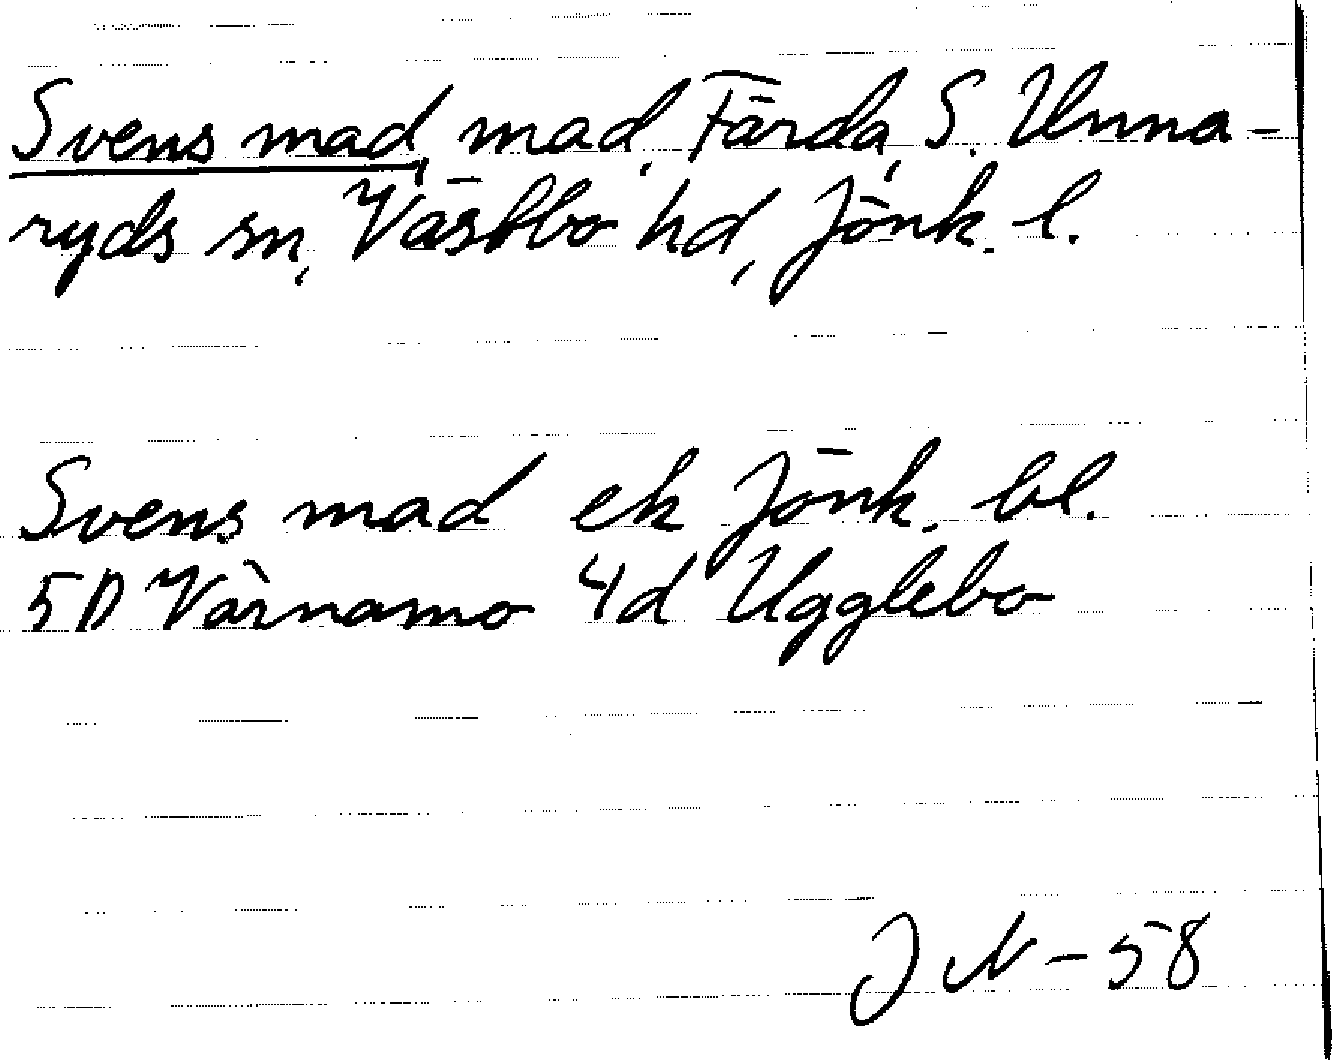 Svens mad, mad, Färda, S. Unna-
ryds sn, Västbo hd, Jönk. l.
Svens mad ek Jönk. bl.
5D Värnamo 4d Ugglebo
J N - 58